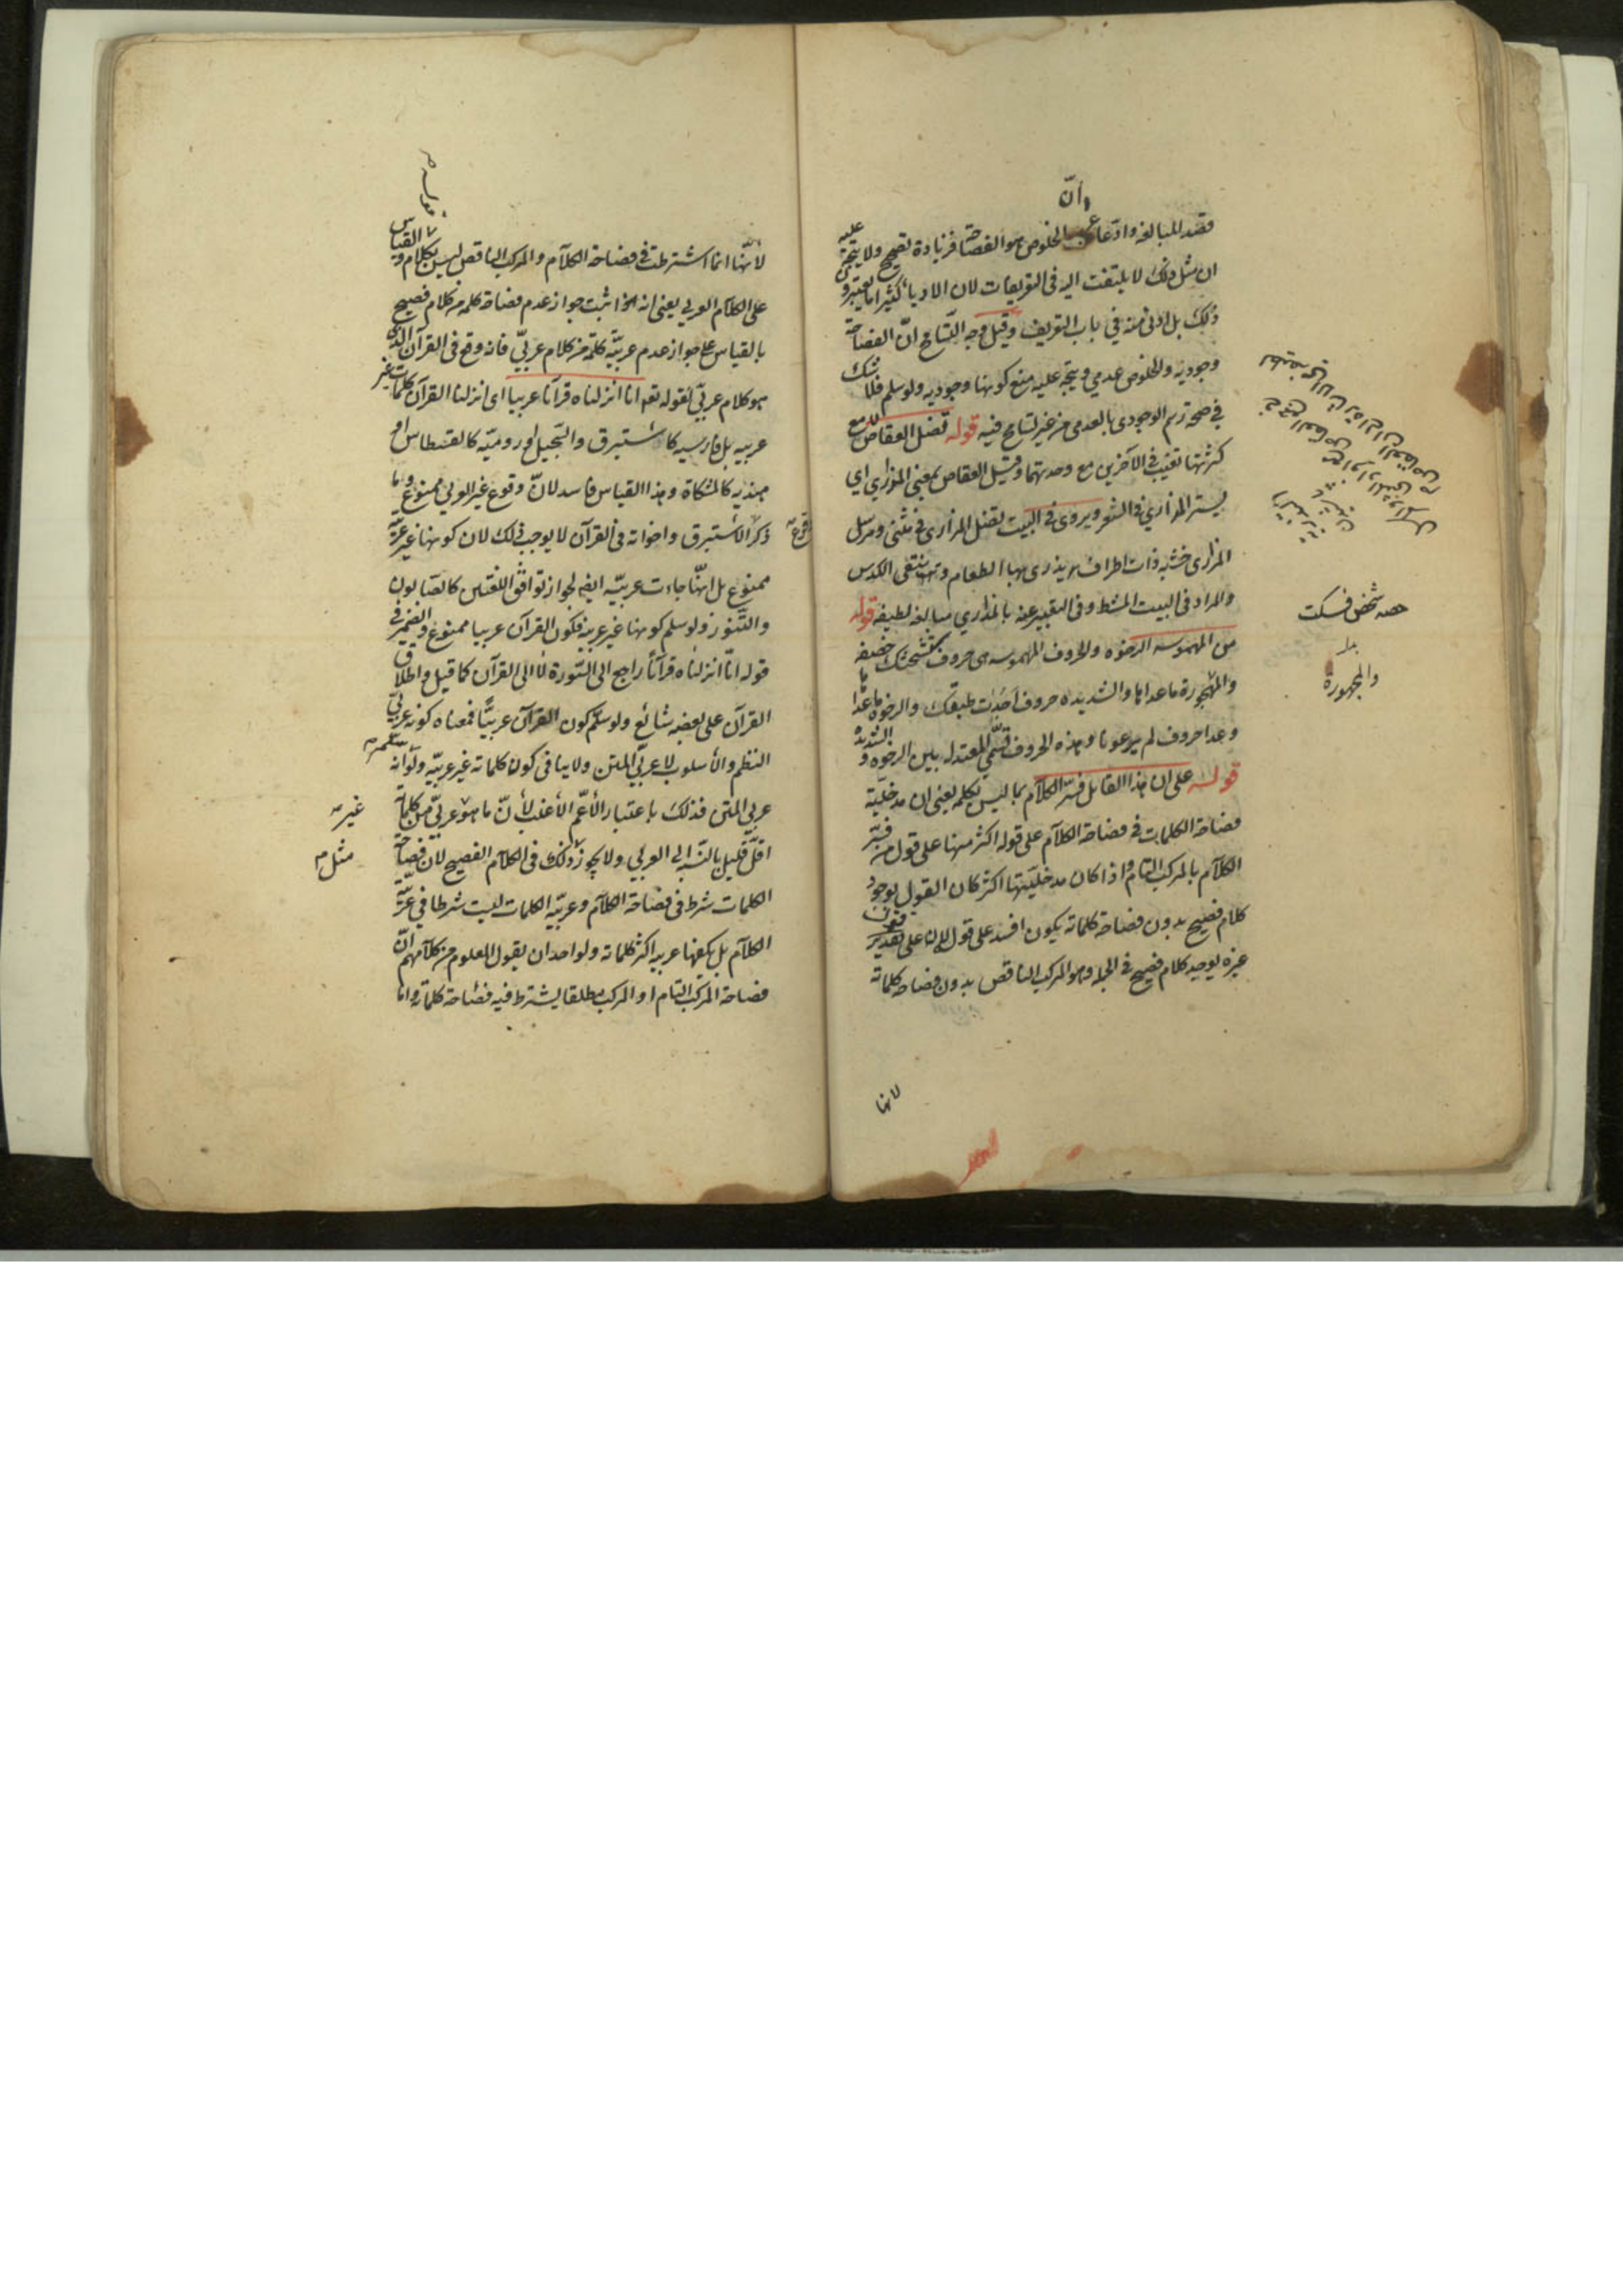 وأنّ
قصد المبالغة وادعاء الخلوص هو الفصاحة فزيادة تصحيح ولا يتجه عليه
ان مثل ذلك لا يلتفت اليه فى التعريفات لان الادباء كثيرا ما يعتبرون
ذلك بل ادنى منه في باب التعريف وقيل وجه التسامح انّ الفصاحة
وجودية والخلوص عدمي ويتجه عليه منع كونها وجودية ولو سلم فلا شك
في صحة رسم الوجودى بالعدمى من غير تسامح فيه قوله تضل العقاص مع
كثرتها تغيب في الآخرين مع وحدتهما وقيل العقاص بمعنى المذاري اي
يستر المذاري في الشعر ويروى في البيت تضل المذارى في مثنى ومرسل
المذارى خشبة ذات اطراف يذرى بها الطعام وتنقى الكدس
والمراد فى البيت المشط وفى التعبير عنه بالمذاري مبالغة لطيفة قوله
من المهموسة الرخوة والحروف المهموسة هى حروف ستشحثك خصفه
والمهجورة ما عداها والشديدة حروف اجدت طبقك والرخوة ما عداها
وعدا حروف لم يرعونا وهذه الحروف تسمى المعتدلة بين الرخوة والشديدة
قوله على ان هذا القائل فسّر الكلام بما ليس بكلمة يعنى ان مدخلية
فصاحة الكلمات فى فصاحة الكلام على قوله اكثر منها على قول من فسّر
الكلام بالمركب التام واذا كان مدخليتها اكثر كان القول بوجود
كلام فصيح بدون فصاحة كلماته يكون افسد على قول
غيره يوجد كلام فصيح في الجملة وهو المركب الناقص بدون فصاحة كلماته
لانها
حثه شخص فسكت
بدل
والمجهورة
لأنها انما اشترطت في فصاحة الكلام والمركب الناقص ليس بكلام والقياس
على الكلام العربي يعنى انه اذا ثبت جواز عدم فصاحة كلمة من كلام فصيح
بالقياس على جواز عدم عربيّة كلمة من كلام عربيّ فانه وقع فى القرآن الذى
هو كلام عربيّ لقوله تعه انا انزلناه قرآنا عربيا اى انزلنا القرآن كلمات غير
عربية بل فارسية كالاستبرق والسّجيل او رومية كالقسطاس او
هندية كالمشكاة وهذا القياس فاسد لانّ وقوع غير العربي ممنوع وما
ذكر الاستبرق واخواته فى القرآن لا يوجب ذلك لان كونها غير عربيّة
ممنوع بل انها جاءت عربيّة ايضا لجواز توافق اللغتين كالصابون
والتّنور ولو سلم كونها غير عربية فكون القرآن عربيا ممنوع والضمير فى
قوله انّا انزلناه قرآنًا راجع الى السّورة لا الى القرآن كما قيل واطلاق
القرآن على بعضه شائع ولو سلّم كون القرآن عربيًّا فمعناه كونه عربيّ
النظم والأسلوب لا عربيّ المتن ولا ينافى كون كلماته غير عربيّة ولو انه
عربي المتن فذلك باعتبار الأعمّ الأغلب لأنّ ما هو عربيّ من كلماته
غير
اقلّ قليل بالنسبة الى العربي ولا يجوز ذلك فى الكلام الفصيح لان فصاحة
مثل
الكلمات شرط فى فصاحة الكلام وعربيّة الكلمات ليست شرطا في عربيّة
الكلام بل يكفيها عربية اكثر كلماته ولواحد ان يقول المعلوم من كلامهم انّ
فصاحة المركب التام او المركب مطلقا يشترط فيه فصاحة كلماته واما